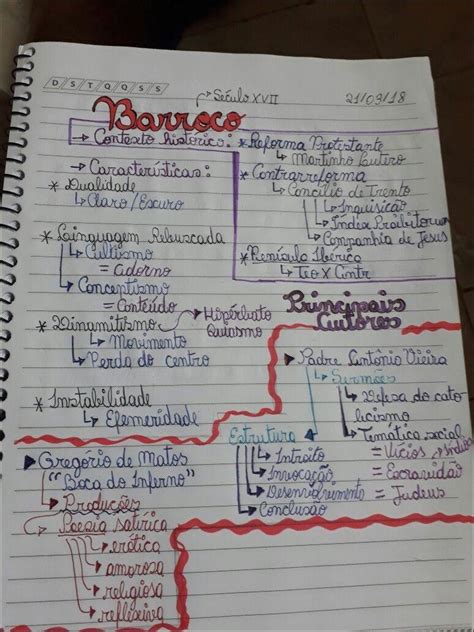 D S T Q Q S S
Século XVII
21/03/18
Barroco
Contexto histórico:
* Reforma Protestante
Martinho Lutero
* Contrarreforma
Concílio de Trento
Inquisição
Index Proibitorum
Companhia de Jesus
* Península Ibérica
Teo X Contr
Características:
* Dualidade
Claro/Escuro
* Linguagem Rebuscada
Cultismo
= adorno
Conceptismo
= Conteúdo
* Dinamitismo
Hipérbato
Movimento
Perda do centro
* Instabilidade
Efemeridade
Principais
Autores
Padre Antônio Vieira
Sermões
Defesa do cato
licismo
Temática social
= Vícios
= Escravidão
= Judeus
Estrutura
Intróito
Invocação
Desenvolvimento
Conclusão
Gregório de Matos
"Boca do Inferno"
Produções
Poesia satírica
erótica
amorosa
religiosa
reflexiva